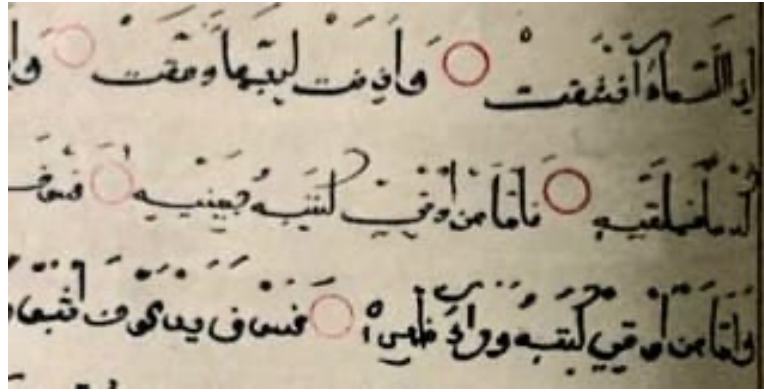 إذا السماء انشقت وأذنت لربها وحقت
كدحا فملقيه فأما من أوتي كتبه بيمينه فسوف
وأما من أوتي كتبه وراء ظهره فسوف يدعوا ثبورا